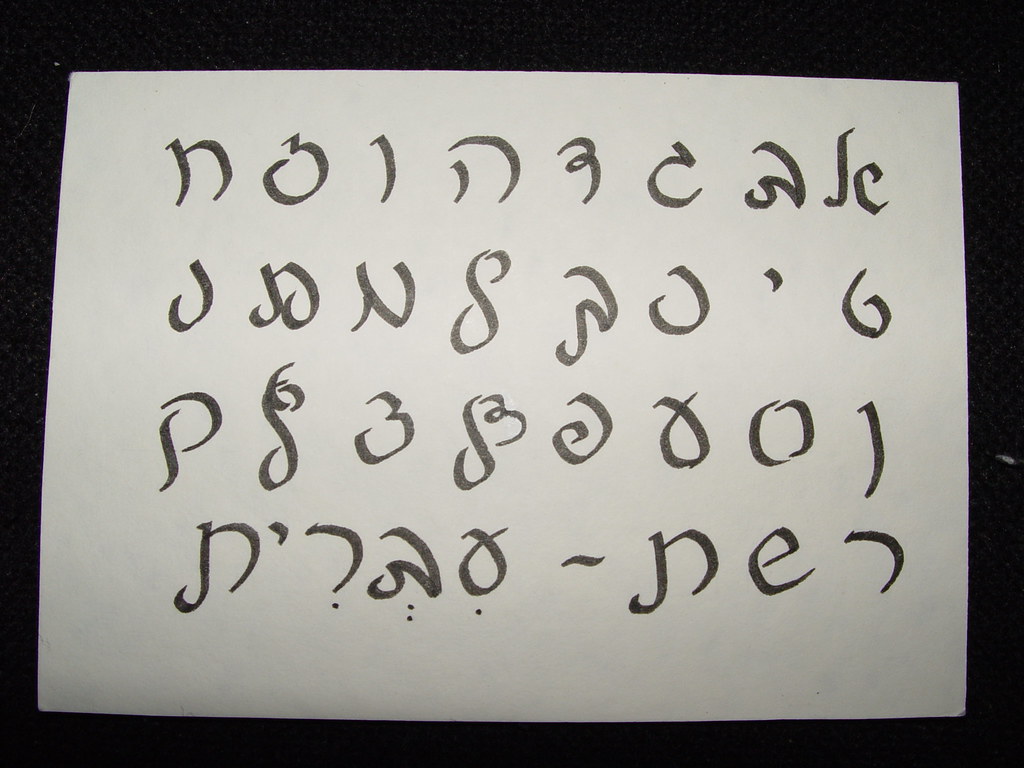 א ב ג ד ה ו ז ח
ט י כ ך ל מ ם נ
ן ס ע פ ף צ ץ ק
ר ש ת - עִבְרִית